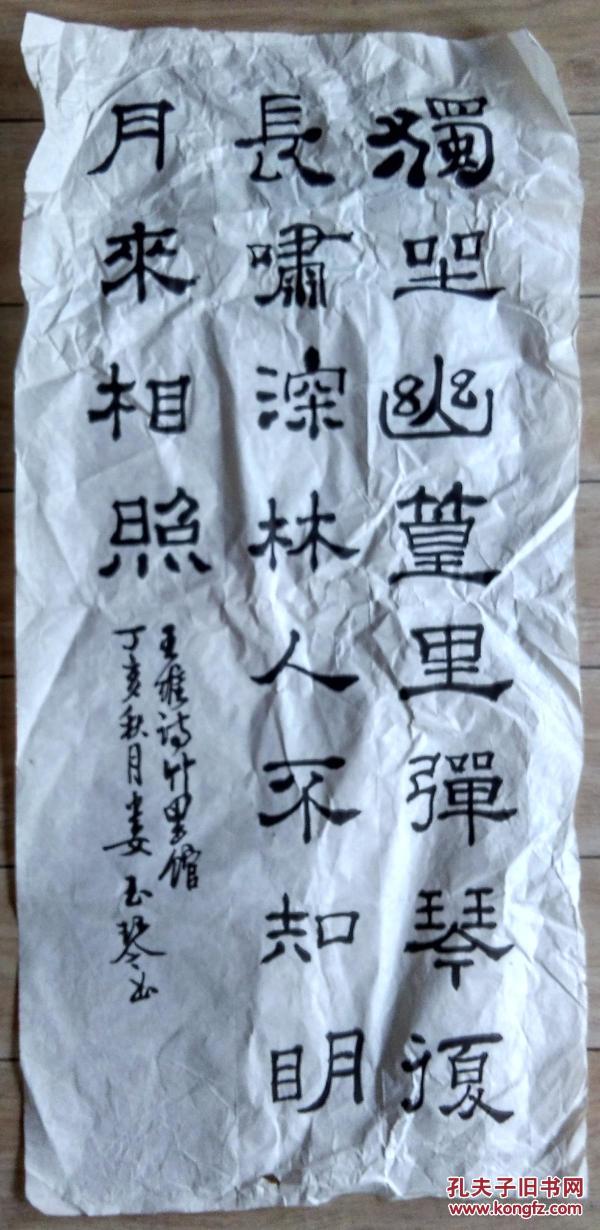 獨坐幽篁里彈琴復
長嘯深林人不知明
月來相照
王維詩竹里館
丁亥秋月婁玉琴书
孔夫子旧书网
www.kongfz.com